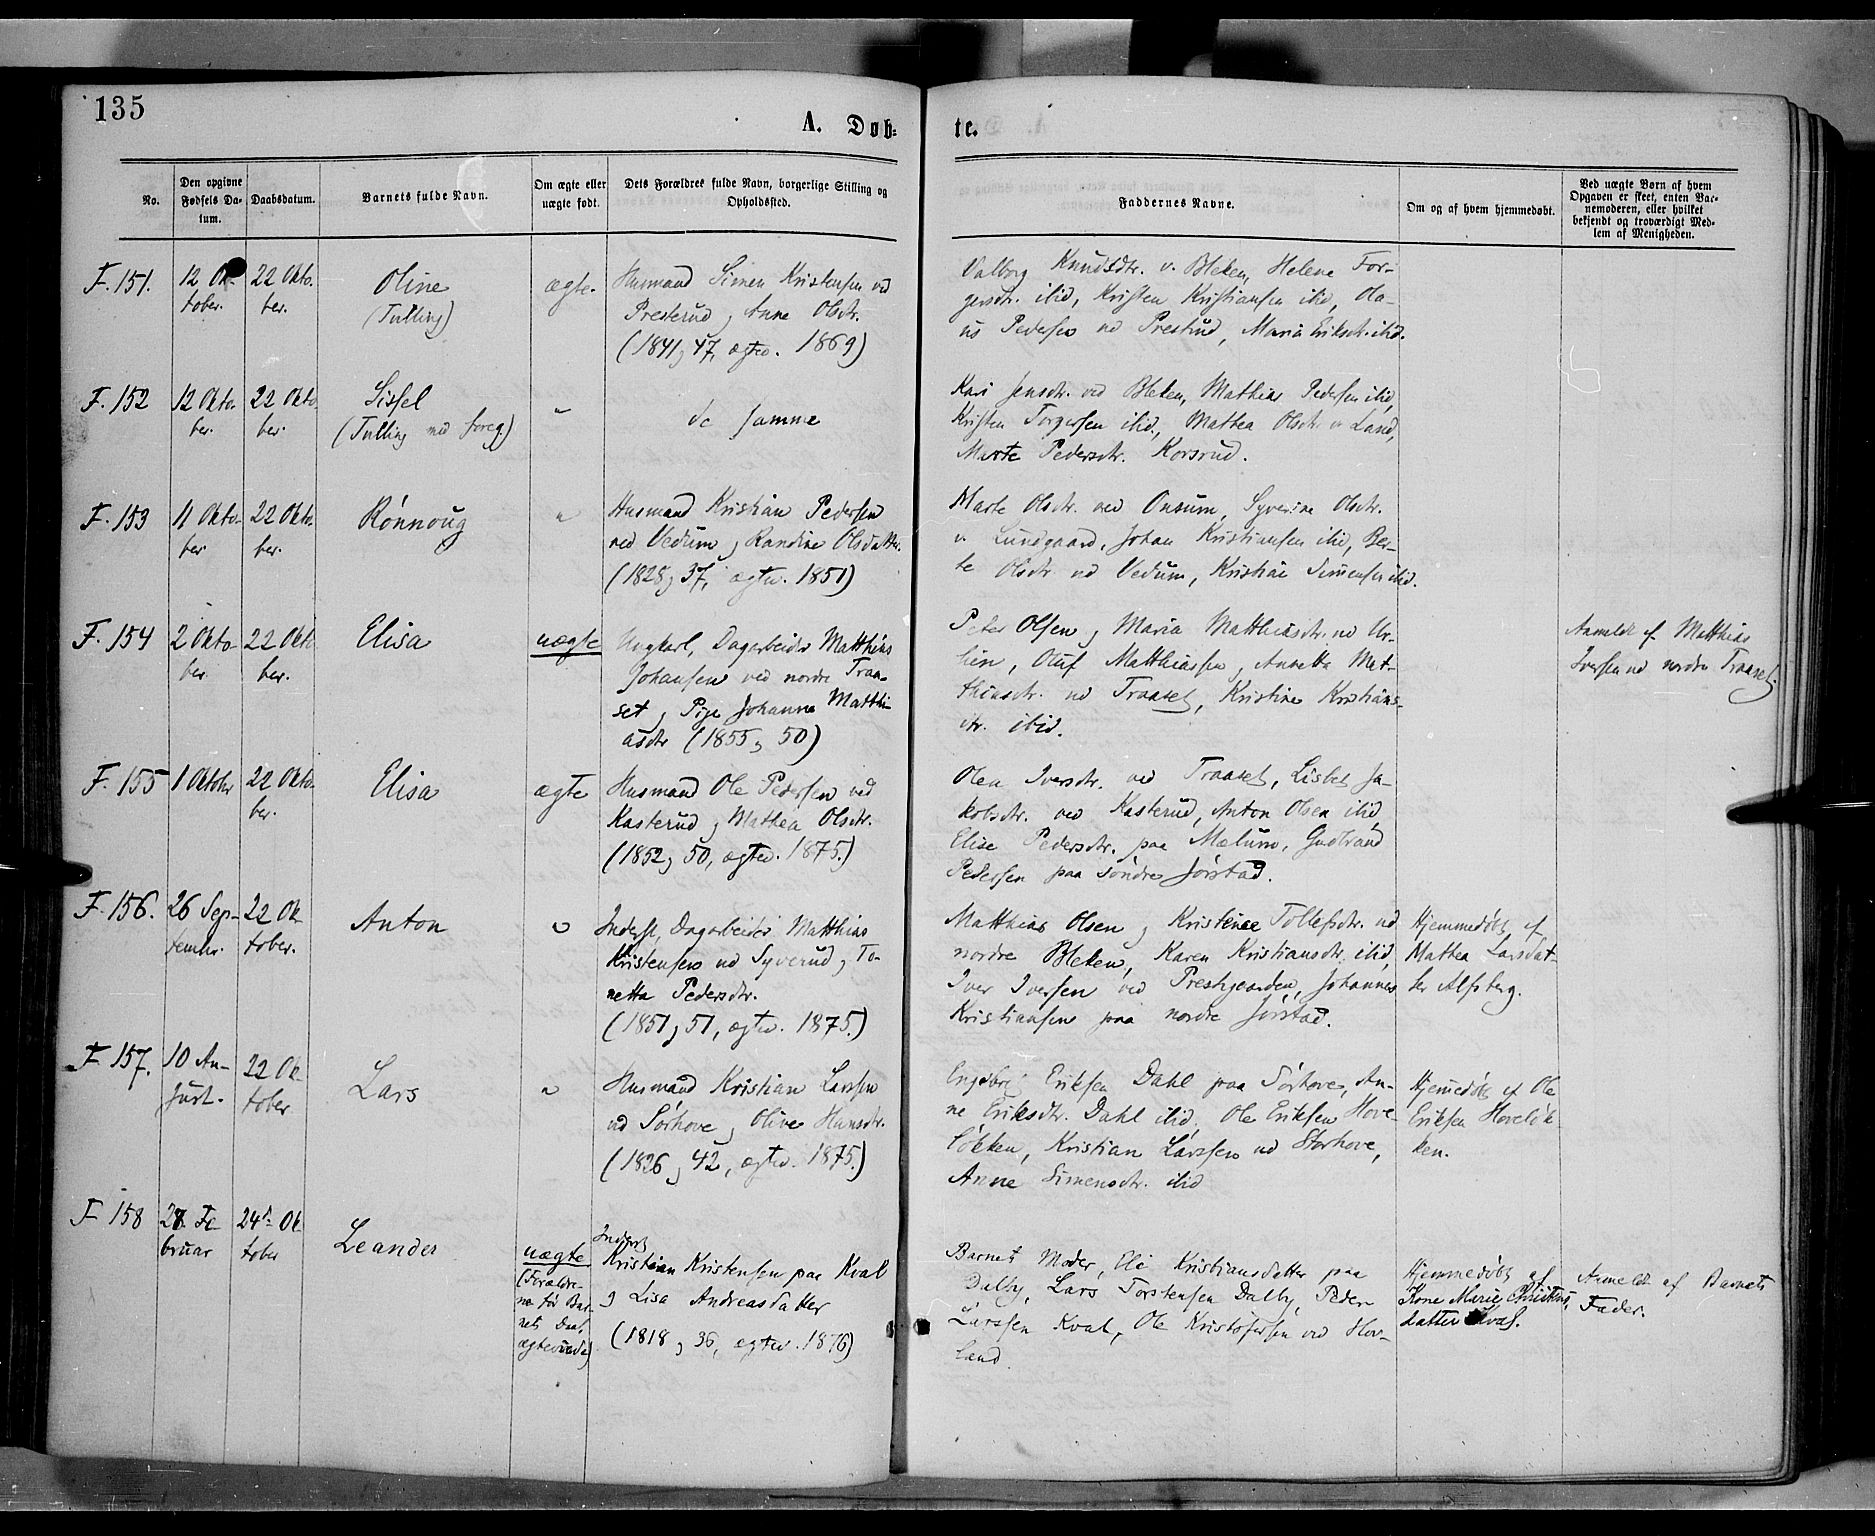 135
A. Døb-
te.
No.
Den opgivne Fødsels Da-tum.
Daabsdatum.
Barnets fulde Navn.
Om ægte eller uægte født.
Dets Forældres fulde Navn, borgerlige Stilling og Opholdssted.
Faddernes Navne.
Om og af hvem hjemmedøbt.
Ved uægte Børn af hvem Opgaven er skeet, enten Bar-nemoderen, eller hvilket bekjendt og troværdigt Med-lem af Menigheden.
F. 151.
12 Ok-
tober.
22 Okto-
ber.
Oline
(Tvilling)
ægte.
Husmand Simen Kristensen ved
Presterud og Anne Olsdtr.
(1841 og 47, ægtev. 1869)
Valborg Knudsdtr. v. Bleken, Helene Tor-
gersdtr. ibid, Kristen Kristiansen ibid, Ola-
us Pedersen ved Prestrud, Maria Eriksdtr. ibid.
F. 152
12 Okto-
ber.
22 Okto-
ber.
Sissel
(Tvilling med foreg.)
"
de samme
Kari Jensdtr. ved Bleken, Mathias Pedersen ibid,
Kristen Torgersen ibid., Mathea Olsdtr. v. Land,
Marte Pedersdtr. Korsrud.
F. 153
11 Okto-
ber
22 Okto-
ber.
Rønnoug
"
Husmand Kristian Pedersen
ved Vedum og Randine Olsdatter.
(1828 og 37, ægtev. 1851)
Marte Olsdtr. ved Onsum, Syverine Olsdtr.
v. Lundgaard, Johan Kristiansen ibid, Ber-
te Olsdtr. ved Vedum, Kristian Simensen ibid.
F. 154
2 Okto-
ber.
22 Okto-
ber.
Elisa
uægte
Ungkarl, Dagarbeider Matthias
Johansen ved nordre Traa-
set og Pige Johanne Matthi-
asdtr (1855 og 50)
Peter Olsen og Maria Matthiasdtr. ved Ur-
lien, Oluf Matthiassen og Annetta Mat-
thiasdtr. ved Traaset, Kristine Kristians-
dtr. ibid.
Anmeldt af Matthias
Iversen ved nordre Traaset.
F. 155
1 Oktober
22 Okto-
ber.
Elisa
ægte
Husmand Ole Pedersen ved
Kasterud og Mathea Olsdtr.
(1852 og 50, ægtev. 1875.)
Olea Iversdtr. ved Traaset, Lisbet Ja-
kobsdtr. ved Kasterud, Anton Olsen ibid,
Elise Pedersdtr. paa Mælum, Gudbrand
Pedersen paa søndre Jørstad.
F. 156.
26 Sep-
tember.
22 Ok-
tober.
Anton
"
Inderst, Dagarbeider Matthias
Kristensen ved Syverud og To-
netta Pedersdtr.
(1851 og 51, ægtev. 1875.)
Matthias Olsen og Kristense Tollefsdtr. ved
nordre Bleken, Karen Kristiansdtr. ibid,
Iver Iversen ved Prestgaarden, Johannes
Kristiansen paa nordre Jørstad.
Hjemmedøbt af
Mathea Larsdat-
ter Alfsberg.
F. 157.
10 Au-
gust.
22 Ok-
tober
Lars
"
Husmand Kristian Larsen
ved Sørhove og Oline Hansdtr.
(1826 og 42, ægtev. 1875.)
Engebrig Eriksen Dahl paa Sørhove, An-
ne Eriksdtr. Dahl ibid. Ole Eriksen Hove-
løkken, Kristian Larssen ved Storhove,
Anne Simensdtr. ibid
Hjemmedøbt af Ole
Eriksen Hoveløk-
ken.
F 158
28. Fe-
bruar
24de Ok-
tober
Leander
uægte
(Forældre-
ne før Bar-
nets Daab
ægteviede)
Inderst
Kristian Kristensen paa Kval
og Lisa Andreasdatter
(1818 og 36, ægtev. 1876)
Barnets Moder, Eli Kristiansdatter paa
Dalby, Lars Torstensen Dalby, Peder
Larssen Kval, Ole Kristofersen ved Hov-
land.
Hjemmedøbt af
Kone Marie Christens-
datter Kval.
Anmeldt af Barnets
Fader.